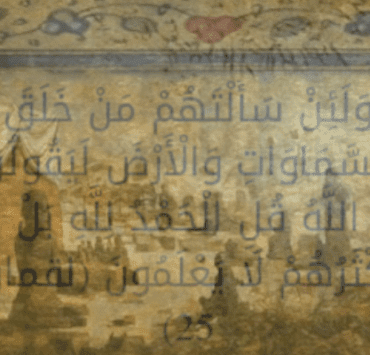 وَلَئِنْ سَأَلْتَهُمْ مَنْ خَلَقَ
سَّمَاوَاتِ وَالْأَرْضَ لَيَقُولُ
اللَّهُ قُلِ الْحَمْدُ لِلَّهِ بَلْ
ثَرُهُمْ لَا يَعْلَمُونَ (لقما
(25